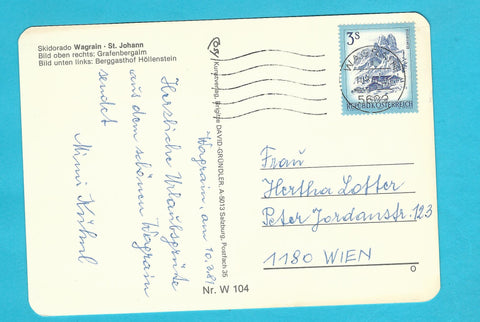 Skidorado Wagrain - St. Johann
Bild oben rechts: Grafenbergalm
Bild unten links: Berggasthof Höllenstein
Wagrain, am 10.2.81
Herzliche Urlaubsgrüße
aus dem schönen Wagrain
sendet
Mimi
Kunstverlag, Brigitte DAVID-GRÜNDLER, A-5013 Salzburg, Postfach 35
Nr. W 104
3S
REPUBLIK ÖSTERREICH
Frau
Hertha Lotter
Peter Jordanstr. 123
1180 WIEN